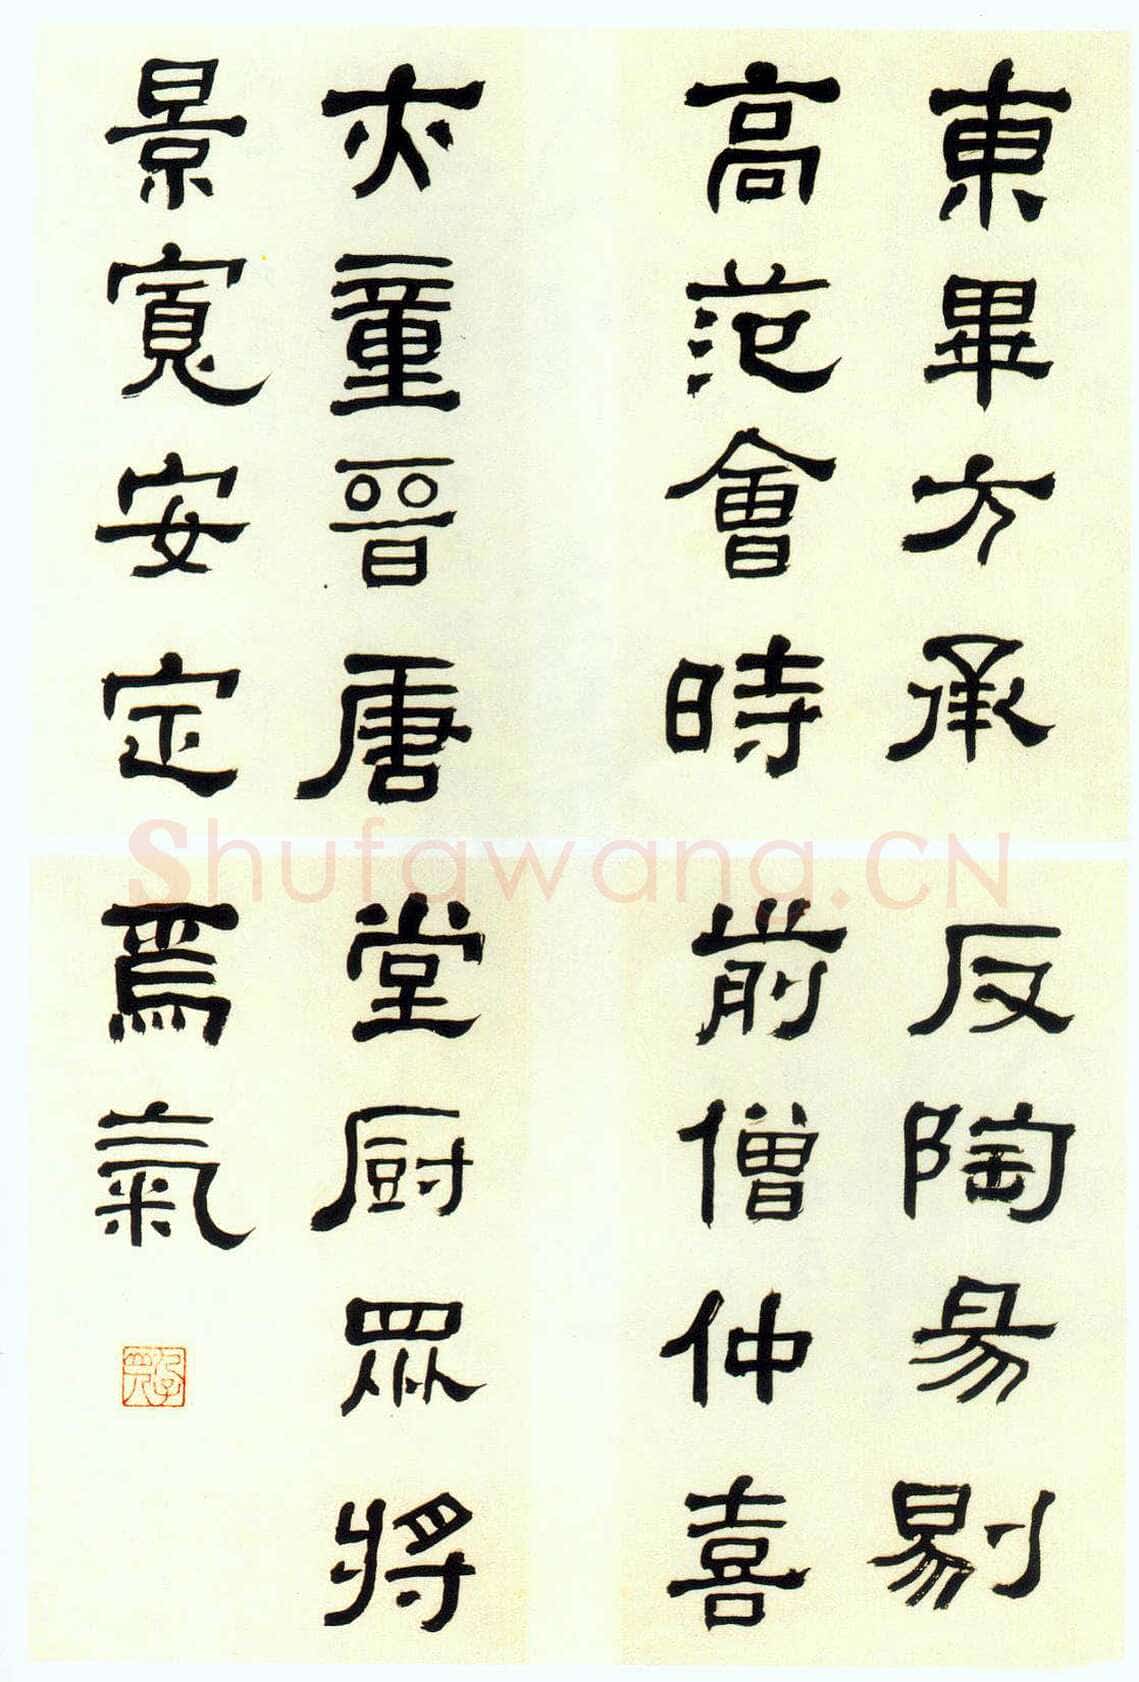 東畢方承反陶昜剔
高范會時前僧仲喜
童晉唐堂厨眾將
景寬安定焉氣
Shufawang.CN